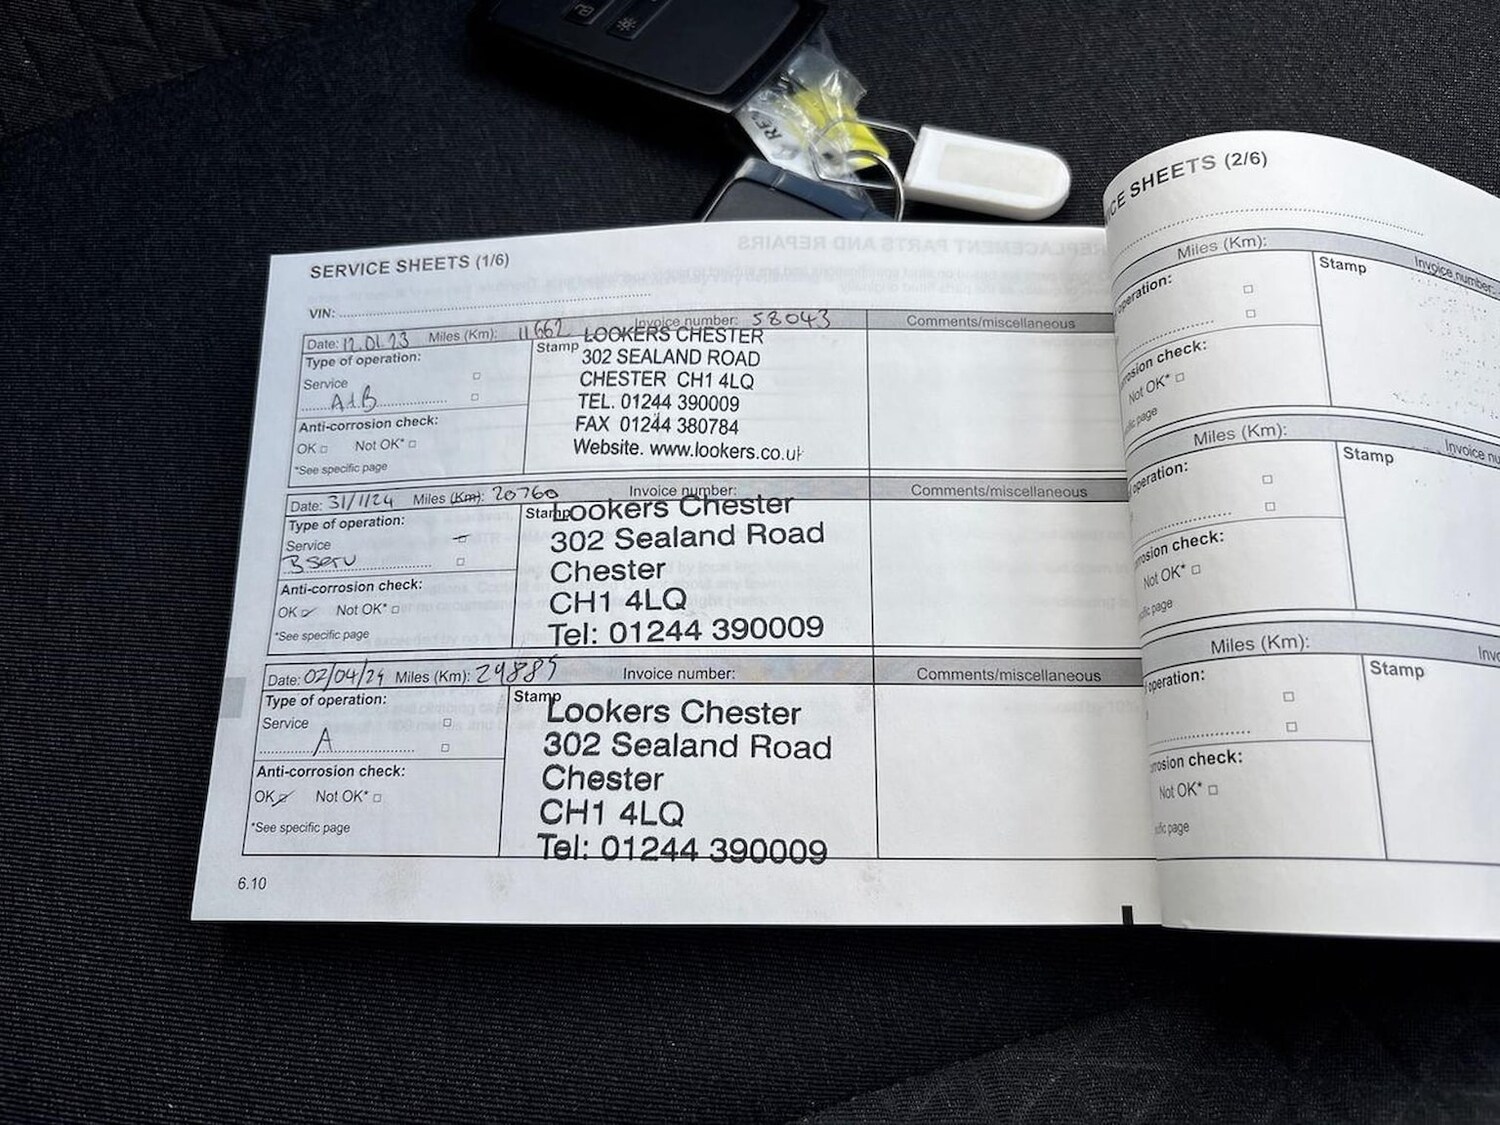 SERVICE SHEETS (1/6)
VIN:
Date: 12.01.23 Miles (Km): 11662 Invoice number: 58043 Comments/miscellaneous
Type of operation:
Service
A+B
Anti-corrosion check:
OK □ Not OK* □
*See specific page
Stamp
LOOKERS CHESTER
302 SEALAND ROAD
CHESTER CH1 4LQ
TEL. 01244 390009
FAX 01244 380784
Website. www.lookers.co.uk
Date: 31/1/24 Miles (Km): 20760 Invoice number: Comments/miscellaneous
Type of operation:
Service
B Serv
Anti-corrosion check:
OK Not OK* □
*See specific page
Stamp
Lookers Chester
302 Sealand Road
Chester
CH1 4LQ
Tel: 01244 390009
Date: 02/04/24 Miles (Km): Invoice number: Comments/miscellaneous
Type of operation:
Service
A
Anti-corrosion check:
OK Not OK* □
*See specific page
Stamp
Lookers Chester
302 Sealand Road
Chester
CH1 4LQ
Tel: 01244 390009
6.10
REPLACEMENT PARTS AND REPAIRS
ICE SHEETS (2/6)
Miles (Km): Invoice number:
operation: Stamp
rosion check:
Not OK* □
page
Miles (Km): Invoice nu
operation: Stamp
rosion check:
Not OK* □
fic page
Miles (Km): Invo
operation: Stamp
rosion check:
Not OK* □
ific page